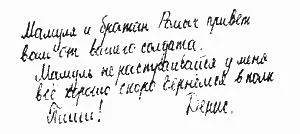 Мамуля и братан Ромыч привет
вам от вашего солдата.
Мамуль не распускайся у меня
всё хорошо скоро вернёмся в полк
Пиши! Денис.